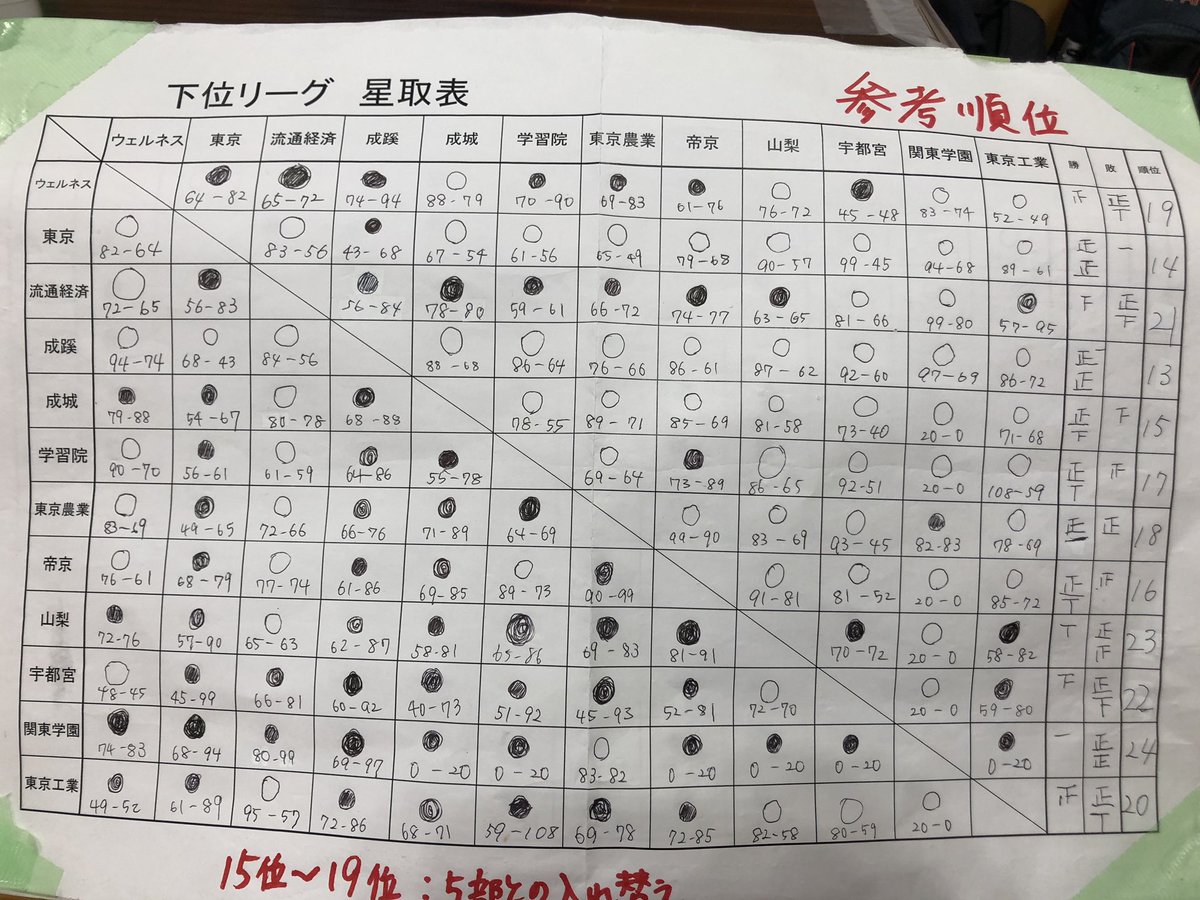 下位リーグ 星取表
参考順位
ウェルネス 東京 流通経済 成蹊 成城 学習院 東京農業 帝京 山梨 宇都宮 関東学園 東京工業 勝 敗 順位
ウェルネス ●64-82 ●65-72 ●74-94 ○88-79 ●70-90 ●69-83 ●61-76 ○76-72 ●45-48 ○83-74 ○52-49 19
東京 ○82-64 ○83-56 ●43-68 ○67-54 ○61-56 ○65-49 ○79-68 ○90-57 ○99-45 ○94-68 ○89-61 正正 一 14
流通経済 ○72-65 ●56-83 ●56-84 ●78-80 ●59-61 ●66-72 ●74-77 ●63-65 ○81-66 ○99-80 ●57-95 21
成蹊 ○94-74 ○68-43 ○84-56 ○88-68 ○86-64 ○76-66 ○86-61 ○87-62 ○92-60 ○97-69 ○86-72 正正 13
成城 ●79-88 ●54-67 ○80-78 ●68-88 ○78-55 ○89-71 ○85-69 ○81-58 ○73-40 ○20-0 ○71-68 15
学習院 ○90-70 ●56-61 ○61-59 ●64-86 ●55-78 ○69-64 ●73-89 ○86-65 ○92-51 ○20-0 ○108-59 17
東京農業 ○83-69 ●49-65 ○72-66 ●66-76 ●71-89 ●64-69 ○99-90 ○83-69 ○93-45 ●82-83 ○78-69 正 正 18
帝京 ○76-61 ●68-79 ○77-74 ●61-86 ●69-85 ○89-73 ●90-99 ○91-81 ○81-52 ○20-0 ○85-72 16
山梨 ●72-76 ●57-90 ○65-63 ●62-87 ●58-81 ●65-86 ●69-83 ●81-91 ●70-72 ○20-0 ●58-82 23
宇都宮 ○48-45 ●45-99 ●66-81 ●60-92 ●40-73 ●51-92 ●45-93 ●52-81 ○72-70 ○20-0 ●59-80 22
関東学園 ●74-83 ●68-94 ●80-99 ●69-97 ●0-20 ●0-20 ○83-82 ●0-20 ●0-20 ●0-20 ●0-20 一 正正 24
東京工業 ●49-52 ●61-89 ○95-57 ●72-86 ●68-71 ●59-108 ●69-78 ●72-85 ○82-58 ○80-59 ○20-0 20
15位〜19位:5部との入れ替え